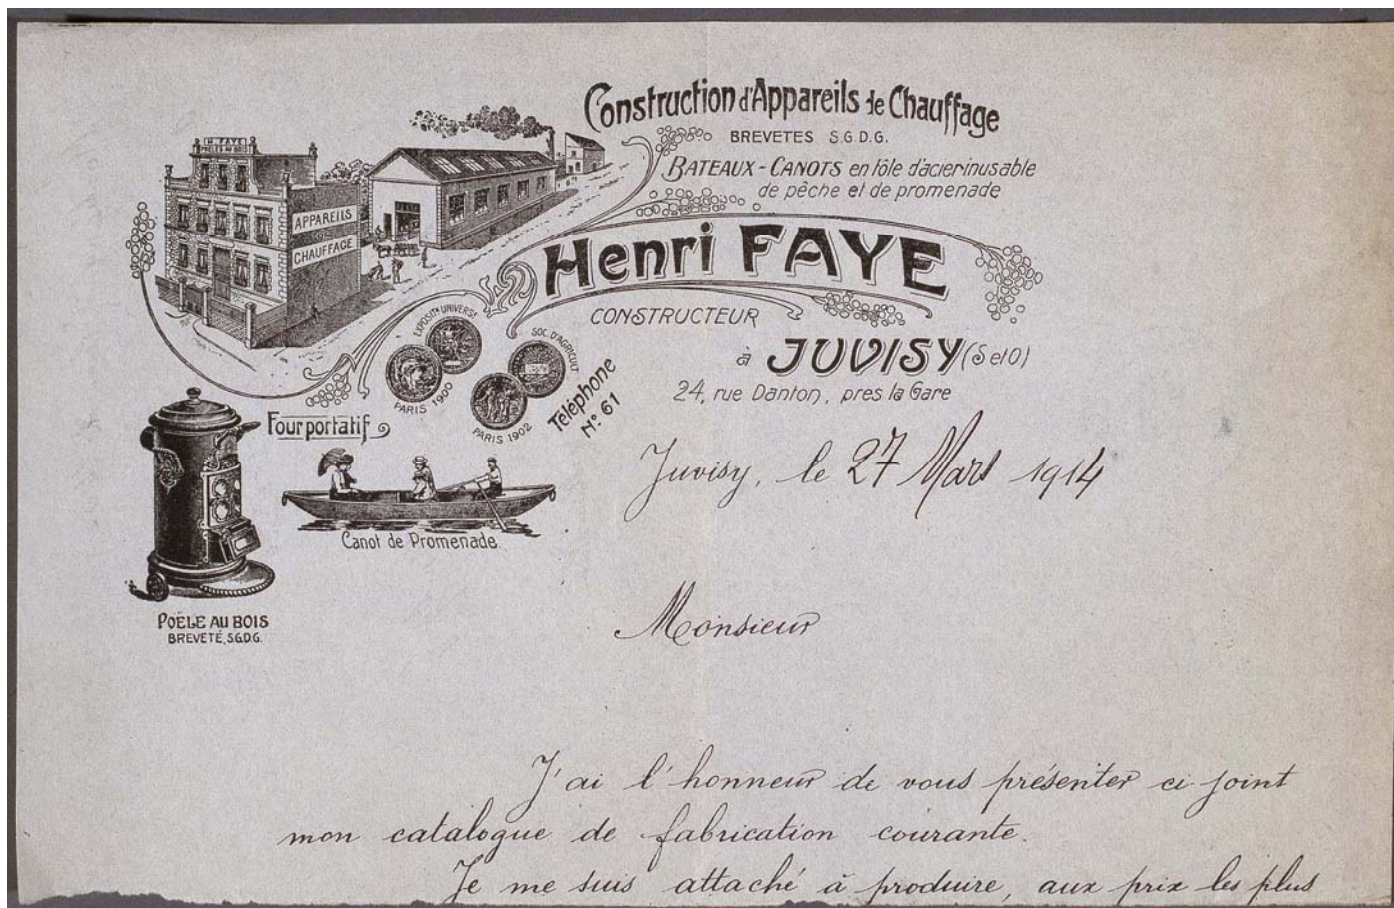 Construction d'Appareils de Chauffage
BREVETES S.G.D.G.
BATEAUX-CANOTS en tôle d'acier inusable
de pêche et de promenade
Henri FAYE
CONSTRUCTEUR
à JUVISY (S et O)
24, rue Danton, pres la Gare
H. FAYE
POELES AU BOIS
APPAREILS
CHAUFFAGE
EXPOSITn UNIVERSe
PARIS 1900
SOC. D'AGRICULT
PARIS 1902
Téléphone
No. 61
Four portatif
Canot de Promenade.
POËLE AU BOIS
BREVETÉ, S.G.D.G.
Juvisy, le 27 Mars 1914
Monsieur
J'ai l'honneur de vous présenter ci joint
mon catalogue de fabrication courante.
Je me suis attaché à produire, aux prix les plus